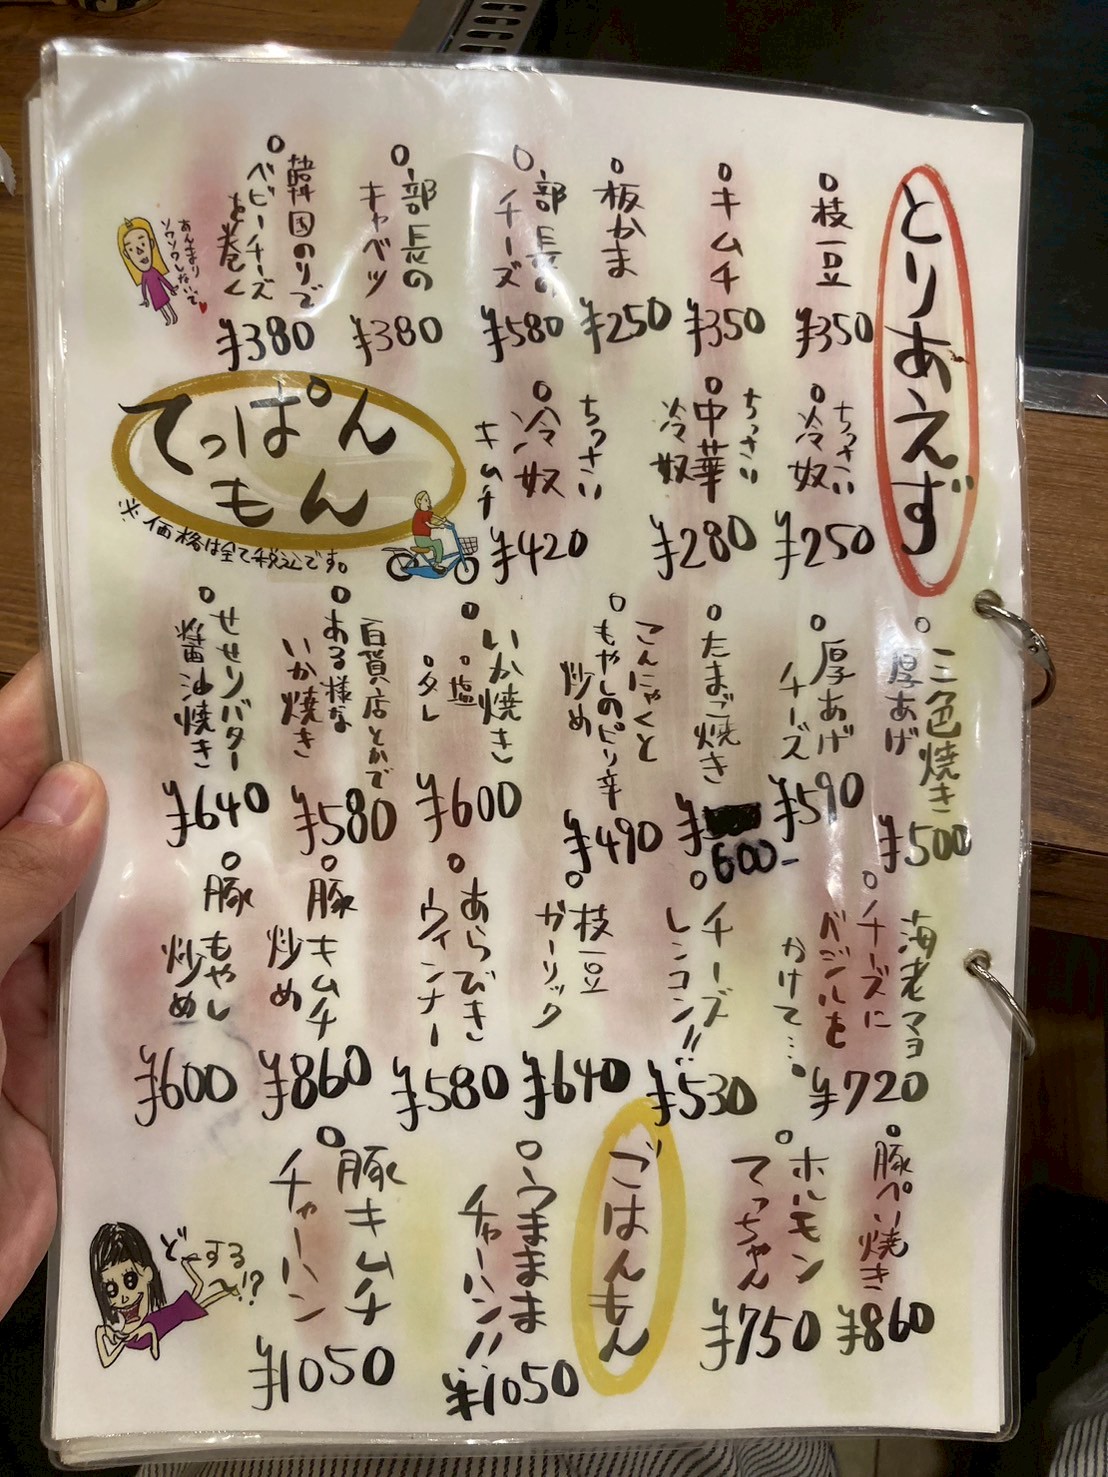 とりあえず
枝豆
¥350
キムチ
¥350
板かま
¥250
部長の
チーズ
¥580
部長の
キャベツ
¥380
韓国のりで
ベビーチーズ
を巻く
¥380
あんまり
ソワソワしないで
ちっさい
冷奴
¥250
ちっさい
中華
冷奴
¥280
ちっさい
冷奴
キムチ
¥420
てっぱん
もん
※価格は全て税込です。
三色焼き
厚あげ
¥500
厚あげ
チーズ
¥590
たまご焼き
¥
600-
こんにゃくと
もやしのピリ辛
炒め
¥490
いか焼き
塩
タレ
¥600
百貨店とかで
ある様な
いか焼き
¥580
せせりバター
醤油焼き
¥640
海老マヨ
チーズに
バジルを
かけて…。
¥720
チーズ
レンコン!!
¥530
枝豆
ガーリック
¥640
あらびき
ウィンナー
¥580
豚キムチ
炒め
¥860
豚もやし
炒め
¥600
豚ペイ焼き
¥860
ホルモン
てっちゃん
¥750
ごはんもん
うままま
チャーハン!!
¥1050
豚キムチ
チャーハン
¥1050
どーする
〜!?